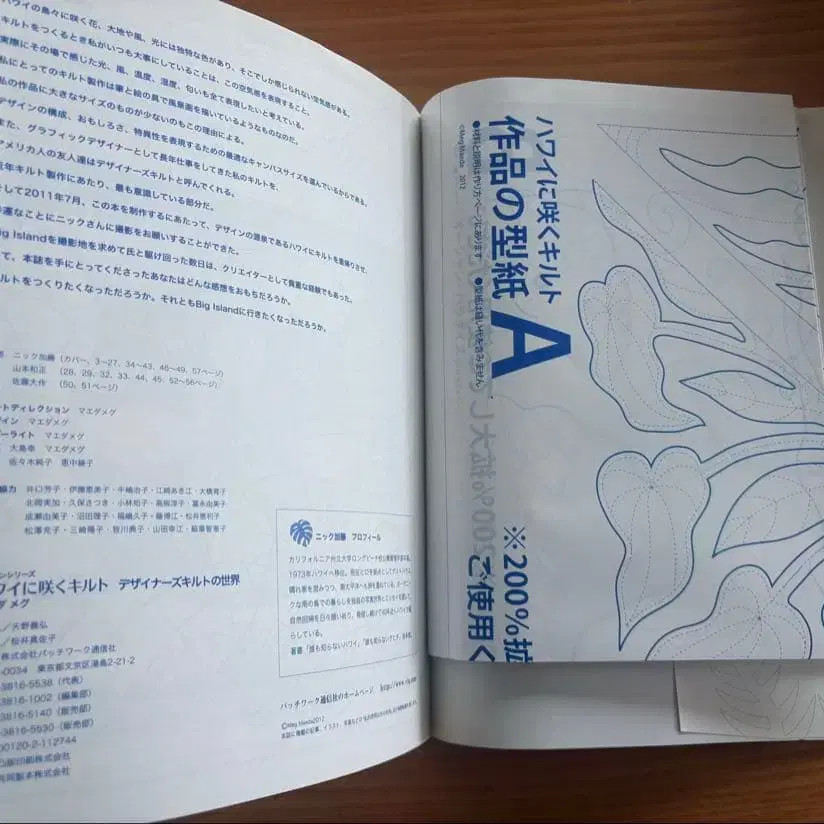 ハワイの島々に咲く花、大地や風、光には独特な色があり、そこでしか感じられない空気感がある。
キルトをつくるとき私がいつも大事にしていることは、この空気感を表現すること。
実際にその場で感じた光、風、温度、湿度、匂いも全て表現したいと考えている。
私にとってのキルト製作は筆と絵の具で風景画を描いているようなものなのだ。
私の作品に大きなサイズのものが少ないのもこの理由による。
デザインの構成、おもしろさ、特異性を表現するための最適なキャンバスサイズを選んでいるからである。
また、グラフィックデザイナーとして長年仕事をしてきた私のキルトを、
アメリカ人の友人達はデザイナーズキルトと呼んでくれる。
近年キルト製作にあたり、最も意識している部分だ。
して2011年7月、この本を制作するにあたって、デザインの源泉であるハワイにキルトを里帰りさせ、
運なことにニックさんに撮影をお願いすることができた。
Big Islandを撮影地を求めて氏と駆け回った数日は、クリエイターとして貴重な経験でもあった。
て、本誌を手にとってくださったあなたはどんな感想をおもちだろうか。
ルトをつくりたくなっただろうか。それともBig Islandに行きたくなっただろうか。
ニック加藤 (カバー、3〜27、34〜43、46〜49、57ページ)
山本和正 (28、29、32、33、44、45、52〜56ページ)
佐藤大作 (50、51ページ)
ートディレクション マエダメグ
イン マエダメグ
ーライト マエダメグ
大島幸 マエダメグ
佐々木純子 恵中綾子
協力 井口芳子・伊藤恵美子・牛嶋治子・江崎あき江・大橋寛子
北岡実加・久保さつき・小林知子・高板淳子・冨永由美子
成瀬由美子・沼田理子・福嶋久子・藤博江・松井恵利子
松澤克子・三崎陽子・皆川典子・山田幸江・稲葉智恵子
ンシリーズ
ワイに咲くキルト デザイナーズキルトの世界
ダ メグ
/天野義弘
/桜井真佐子
株式会社パッチワーク通信社
-0034 東京都文京区湯島2-21-2
-3816-5538 (代表)
3816-1002 (編集部)
3816-5140 (販売部)
3816-5530 (販売部)
00120-2-112744
凸版印刷株式会社
共同製本株式会社
ニック加藤 プロフィール
カリフォルニア州立大学ロングビーチ校
1973年ハワイへ移住。
らしている。
著書「誰も知らないハワイ」
パッチワーク通信社のホームページ
©Meg Maeda2012
ハワイに咲くキルト
作品の型紙 A
●材料と説明は作り方ページにあります ●型紙は縫い代を含みません
©Meg Maeda 2012
※200%拡
ご使用く